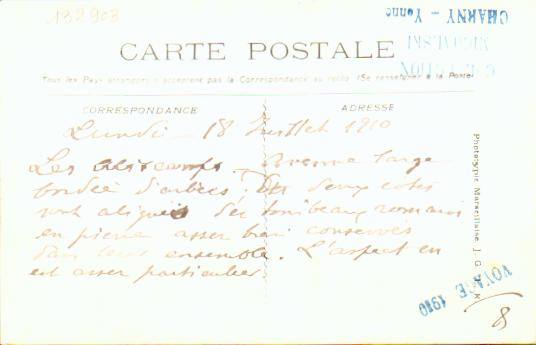 132903
CHARNY - Yonne
NICOLAS MI
COLLECTION
CARTE POSTALE
Tous les Pays étrangers n'acceptent pas la Correspondance au recto (Se renseigner à la Poste)
CORRESPONDANCE
ADRESSE
Lundi - 18 Juillet 1910
Les Aliscamps. Avenue large
bordée d'arbres. Des deux cotés
sont alignés des tombeaux romains
en pierre assez bien conservés
dans leur ensemble. L'aspect en
est assez particulier
Phototypie Marseillaise J. G.
VOYAGE 1910
8